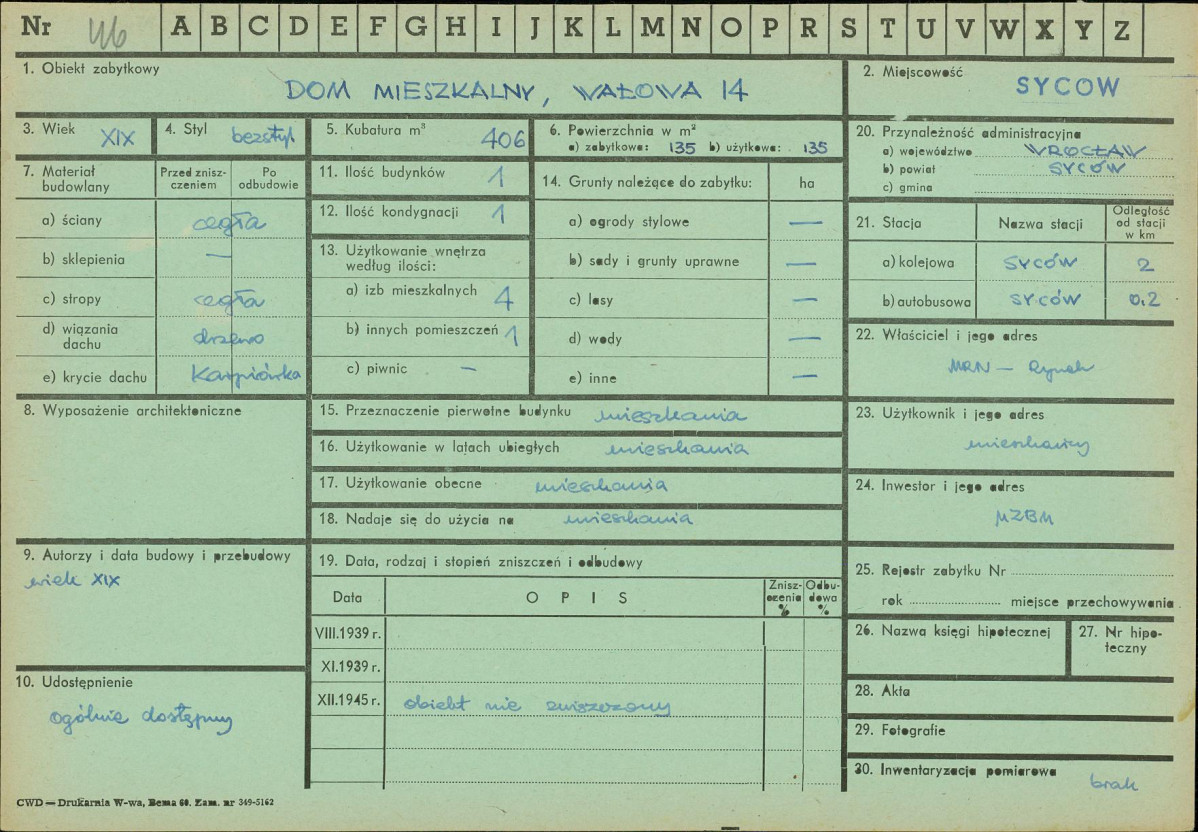 Nr 46 A B C D E F G H I J K L M N O P R S T U V W X Y Z
1. Obiekt zabytkowy
DOM MIESZKALNY, WAŁOWA 14
2. Miejscowość
SYCOW
3. Wiek XIX
4. Styl bezstyl
5. Kubatura m³ 406
6. Powierzchnia w m²
a) zabytkowa: 135 b) użytkowa: 135
20. Przynależność administracyjna
a) województwo WROCŁAW
b) powiat SYCÓW
c) gmina
7. Materiał budowlany
Przed zniszczeniem
Po odbudowie
a) ściany cegła
b) sklepienia —
c) stropy cegła
d) wiązania dachu drzewo
e) krycie dachu Karpiówka
11. Ilość budynków 1
12. Ilość kondygnacji 1
13. Użytkowanie wnętrza
według ilości:
a) izb mieszkalnych 4
b) innych pomieszczeń 1
c) piwnic —
14. Grunty należące do zabytku: ha
a) ogrody stylowe —
b) sady i grunty uprawne —
c) lasy —
d) wody —
e) inne —
21. Stacja
Nazwa stacji
Odległość od stacji w km
a) kolejowa SYCÓW 2
b) autobusowa SYCÓW 0.2
22. Właściciel i jego adres
MRN — Rynek
8. Wyposażenie architektoniczne
15. Przeznaczenie pierwotne budynku mieszkania
16. Użytkowanie w latach ubiegłych mieszkania
17. Użytkowanie obecne mieszkania
18. Nadaje się do użycia na mieszkania
23. Użytkownik i jego adres
mieszkańcy
24. Inwestor i jego adres
MZBM
9. Autorzy i data budowy i przebudowy
wiek XIX
19. Data, rodzaj i stopień zniszczeń i odbudowy
Data
OPIS
Zniszczenia %
Odbudowa %
VIII.1939 r.
XI.1939 r.
XII.1945 r. obiekt nie zniszczony
25. Rejestr zabytku Nr
rok miejsce przechowywania
26. Nazwa księgi hipotecznej
27. Nr hipoteczny
10. Udostępnienie
ogólnie dostępny
28. Akta
29. Fotografie
30. Inwentaryzacja pomiarowa
brak
CWD — Drukarnia W-wa, Bema 60. Zam. nr 349-5162